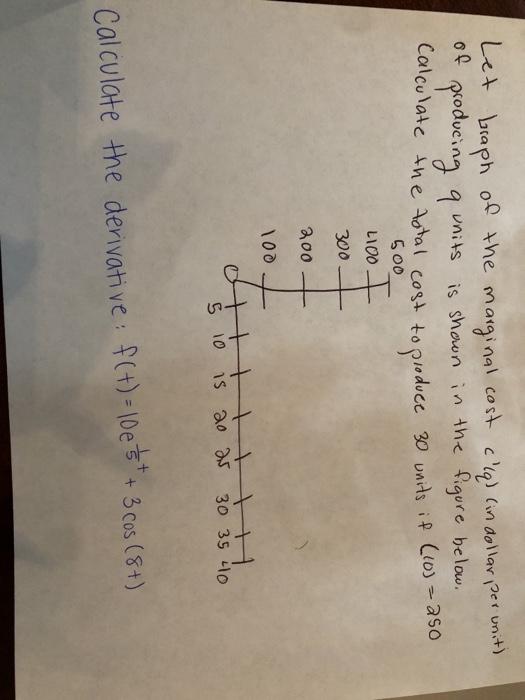 Let braph of the marginal cost c'(q) (in dollar, per unit)
of producing q units is shown in the figure below.
Calculate the total cost to produce 30 units if C(0) = 250
500
400
300
200
100
0
5 10 15 20 25 30 35 40
Calculate the derivative: f(t) = 10e^{\frac{1}{5}t} + 3cos(8t)